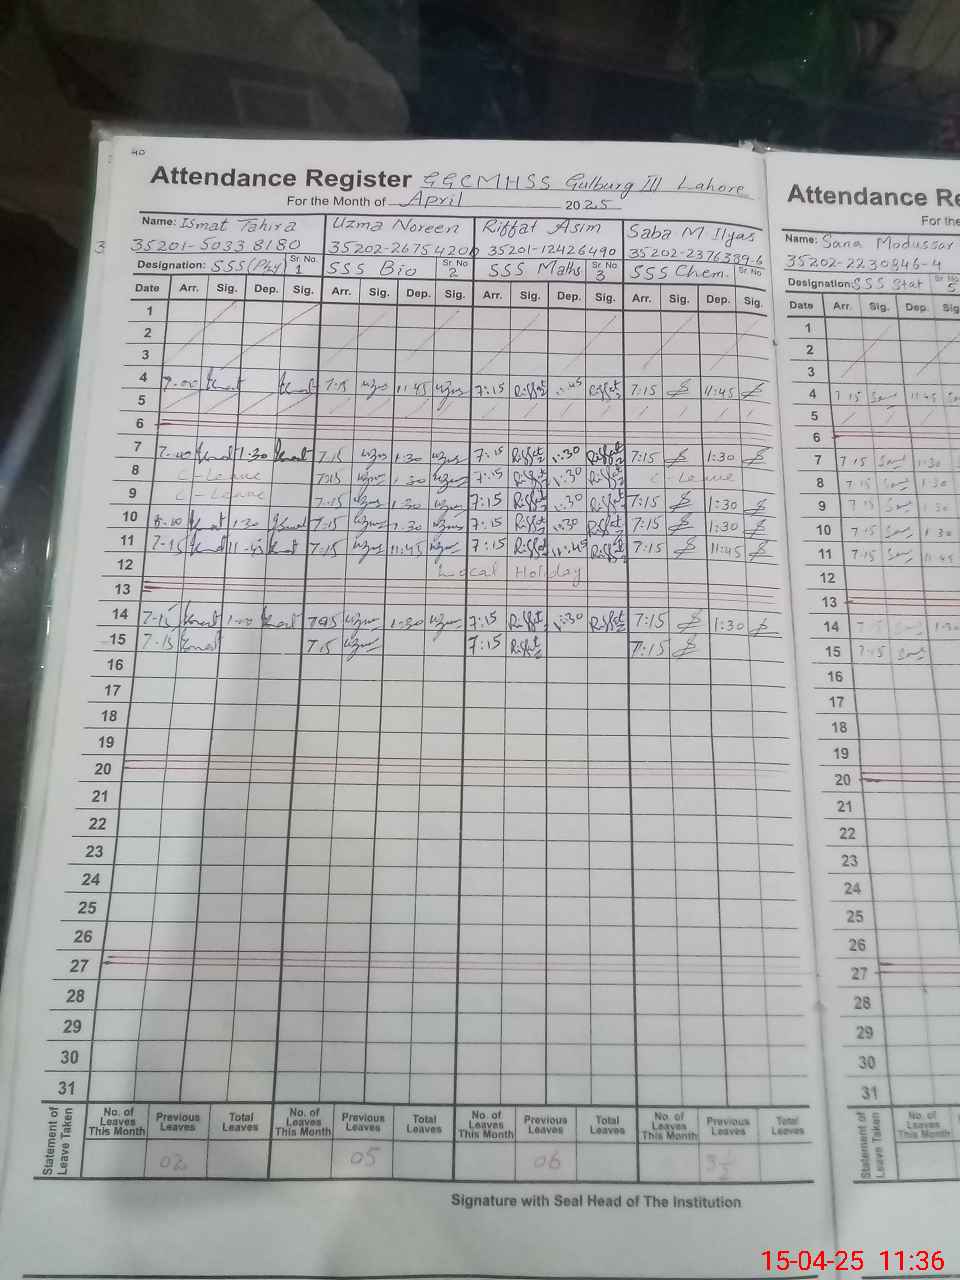 40
Attendance Register GGCMHSS Gulburg III Lahore
For the Month of April 2025
Name: Ismat Tahira Uzma Noreen Riffat Asim Saba M Ilyas
3 35201-5033 8180 35202-2675420 35201-12426490 35202-2376339-6
Designation: SSS (Phy) Sr. No. 1 SSS Bio Sr. No 2 SSS Maths Sr. No 3 SSS Chem. Sr. No
Date Arr. Sig. Dep. Sig. Arr. Sig. Dep. Sig. Arr. Sig. Dep. Sig. Arr. Sig. Dep. Sig.
1
2
3
4 7:00 7:15 Uzma 11:45 Uzma 7:15 Riffat :45 Riffat 7:15 11:45
5
6
7 1:30 7:15 Uzma 1:30 Uzma 7:15 Riffat 1:30 Riffat 7:15 1:30
8 C-Leave 7:15 Uzma 1:30 Uzma 7:15 Riffat 1:30 Riffat C-Leave
9 C-Leave 7:15 Uzma 1:30 Uzma 7:15 Riffat 1:30 Riffat 7:15 1:30
10 1:30 7:15 Uzma 1:30 Uzma 7:15 Riffat 1:30 Riffat 7:15 1:30
11 7:15 11:45 7:15 Uzma 11:45 Uzma 7:15 Riffat 11:45 Riffat 7:15 11:45
12 Local Holiday
13
14 7:15 7:15 Uzma 1:30 Uzma 7:15 Riffat 1:30 Riffat 7:15 1:30
15 7:15 7:15 Uzma 7:15 Riffat 7:15
16
17
18
19
20
21
22
23
24
25
26
27
28
29
30
31
Statement of Leave Taken
No. of Leaves This Month Previous Leaves Total Leaves No. of Leaves This Month Previous Leaves Total Leaves No. of Leaves This Month Previous Leaves Total Leaves No. of Leaves This Month Previous Leaves Total Leaves
02 05 06 3½
Signature with Seal Head of The Institution
Attendance Re
For the
Name: Sana Modussar
35202-2230846-4
Designation: SSS Stat Sr. No 5
Date Arr. Sig. Dep. Sig
1
2
3
4 7:15 Sana 11:45 Sana
5
6
7 7:15 Sana 1:30
8 7:15 Sana 1:30
9 7:15 Sana 1:30
10 7:15 Sana 1:30
11 7:15 Sana 11:45
12
13
14 7:15 Sana 1:30
15 7:15 Sana
16
17
18
19
20
21
22
23
24
25
26
27
28
29
30
31
Statement of Leave Taken
No. of Leaves This Month Previous Leaves
15-04-25 11:36